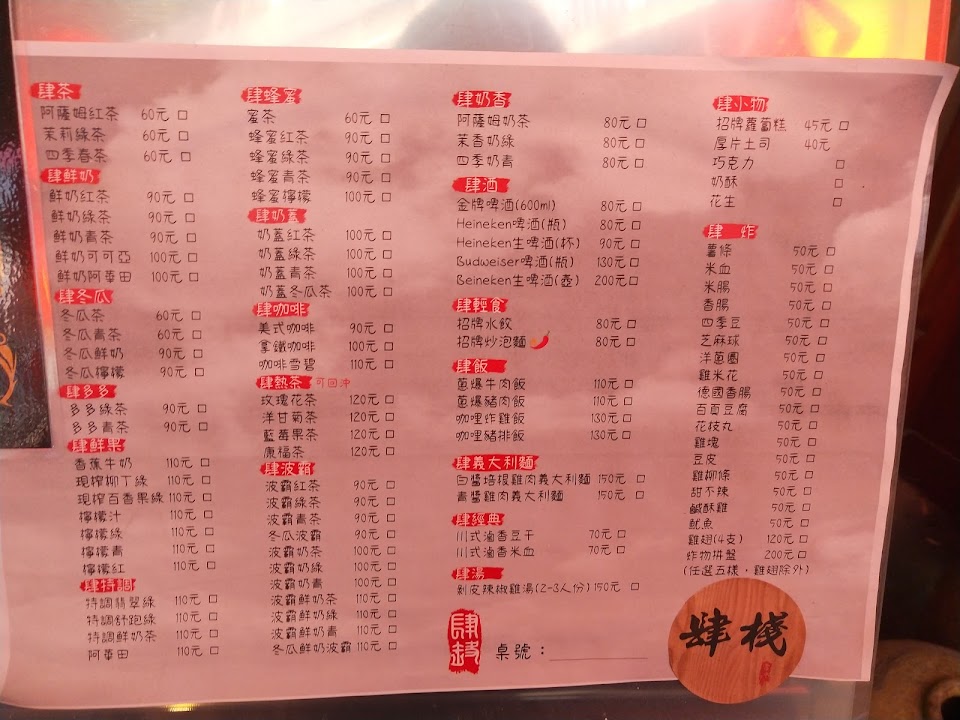 肆茶
阿薩姆紅茶 60元 □
茉莉綠茶 60元 □
四季春茶 60元 □
肆鮮奶
鮮奶紅茶 90元 □
鮮奶綠茶 90元 □
鮮奶青茶 90元 □
鮮奶可可亞 100元 □
鮮奶阿華田 100元 □
肆冬瓜
冬瓜茶 60元 □
冬瓜青茶 60元 □
冬瓜鮮奶 90元 □
冬瓜檸檬 90元 □
肆多多
多多綠茶 90元 □
多多青茶 90元 □
肆鮮果
香蕉牛奶 110元 □
現榨柳丁綠 110元 □
現榨百香果綠 110元 □
檸檬汁 110元 □
檸檬綠 110元 □
檸檬青 110元 □
檸檬紅 110元 □
肆特調
特調翡翠綠 110元 □
特調舒跑綠 110元 □
特調鮮奶茶 110元 □
阿華田 110元 □
肆蜂蜜
蜜茶 60元 □
蜂蜜紅茶 90元 □
蜂蜜綠茶 90元 □
蜂蜜青茶 90元 □
蜂蜜檸檬 100元 □
肆奶蓋
奶蓋紅茶 100元 □
奶蓋綠茶 100元 □
奶蓋青茶 100元 □
奶蓋冬瓜茶 100元 □
肆咖啡
美式咖啡 90元 □
拿鐵咖啡 100元 □
咖啡雪碧 110元 □
肆熱茶 可回沖
玫瑰花茶 120元 □
洋甘菊茶 120元 □
藍莓果茶 120元 □
康福茶 120元 □
肆波霸
波霸紅茶 90元 □
波霸綠茶 90元 □
波霸青茶 90元 □
冬瓜波霸 90元 □
波霸奶茶 100元 □
波霸奶綠 100元 □
波霸奶青 100元 □
波霸鮮奶茶 110元 □
波霸鮮奶綠 110元 □
波霸鮮奶青 110元 □
冬瓜鮮奶波霸 110元 □
肆奶香
阿薩姆奶茶 80元 □
茉香奶綠 80元 □
四季奶青 80元 □
肆酒
金牌啤酒(600ml) 80元 □
Heineken啤酒(瓶) 80元 □
Heineken生啤酒(杯) 90元 □
Budweiser啤酒(瓶) 130元 □
Beineken生啤酒(壺) 200元 □
肆輕食
招牌水餃 80元 □
招牌炒泡麵 80元 □
肆飯
蔥爆牛肉飯 110元 □
蔥爆豬肉飯 110元 □
咖哩炸雞飯 130元 □
咖哩豬排飯 130元 □
肆義大利麵
白醬培根雞肉義大利麵 150元 □
青醬雞肉義大利麵 150元 □
肆經典
川式滷香豆干 70元 □
川式滷香米血 70元 □
肆湯
剝皮辣椒雞湯(2-3人份) 150元 □
桌號：
肆小物
招牌蘿蔔糕 45元 □
厚片土司 40元
巧克力 □
奶酥 □
花生 □
肆 炸
薯條 50元 □
米血 50元 □
米腸 50元 □
香腸 50元 □
四季豆 50元 □
芝麻球 50元 □
洋蔥圈 50元 □
雞米花 50元 □
德國香腸 50元 □
百頁豆腐 50元 □
花枝丸 50元 □
雞塊 50元 □
豆皮 50元 □
雞柳條 50元 □
甜不辣 50元 □
鹹酥雞 50元 □
魷魚 50元 □
雞翅(4支) 120元 □
炸物拼盤 200元 □
(任選五樣，雞翅除外)
肆棧